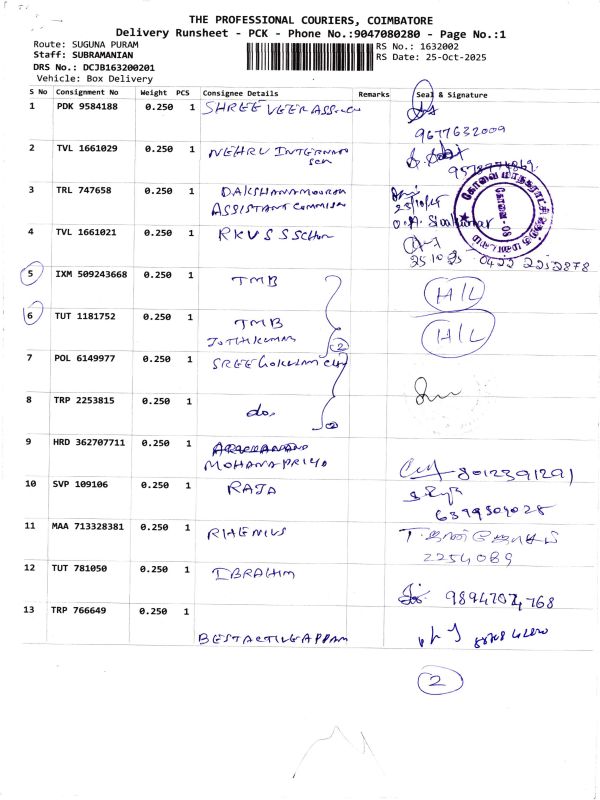 THE PROFESSIONAL COURIERS, COIMBATORE
Delivery Runsheet - PCK - Phone No.:9047080280 - Page No.:1
Route: SUGUNA PURAM
Staff: SUBRAMANIAN
DRS No.: DCJB163200201
Vehicle: Box Delivery
RS No.: 1632002
RS Date: 25-Oct-2025
S No Consignment No Weight PCS Consignee Details Remarks Seal & Signature
1 PDK 9584188 0.250 1 SHREE
9677632009
2 TVL 1661029 0.250 1 NEHRU
3 TRL 747658 0.250 1
ASSISTANT
4 TVL 1661021 0.250 1 RKVSS
0422
5 IXM 509243668 0.250 1 TMB H/L
6 TUT 1181752 0.250 1 TMB H/L
JOTHIKUMAR 2
7 POL 6149977 0.250 1 SREE
8 TRP 2253815 0.250 1 do,
9 HRD 362707711 0.250 1
MOHANA PRIYA 8012391291
10 SVP 109106 0.250 1 RAJA
11 MAA 713328381 0.250 1 RHENIUS
2254089
12 TUT 781050 0.250 1 IBRAHIM
13 TRP 766649 0.250 1
2